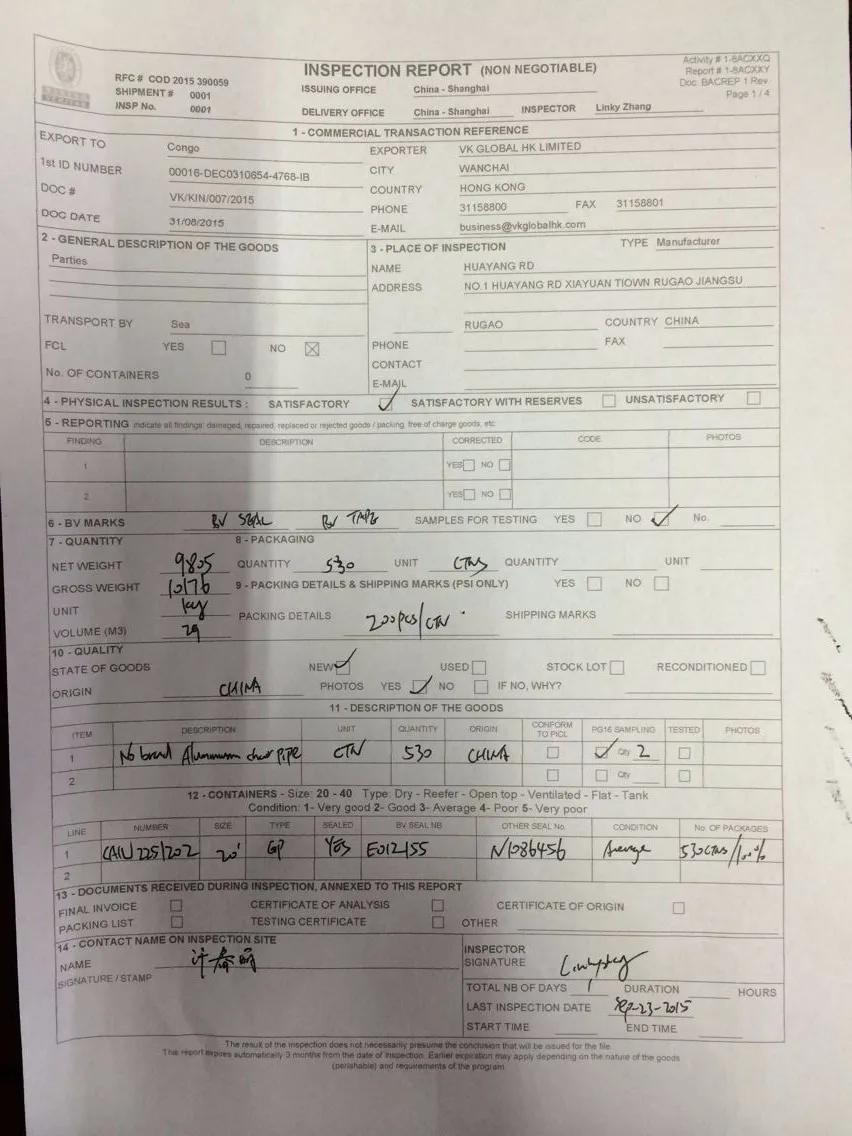 RFC # COD 2015 390059
SHIPMENT # 0001
INSP No. 0001
INSPECTION REPORT (NON NEGOTIABLE)
ISSUING OFFICE China - Shanghai
DELIVERY OFFICE China - Shanghai INSPECTOR Linky Zhang
Activity # 1-8ACXXQ
Report # 1-8ACXXY
Doc. BACREP 1 Rev.
Page 1 / 4
1 - COMMERCIAL TRANSACTION REFERENCE
EXPORT TO Congo
1st ID NUMBER 00016-DEC0310654-4768-IB
DOC # VK/KIN/007/2015
DOC DATE 31/08/2015
EXPORTER VK GLOBAL HK LIMITED
CITY WANCHAI
COUNTRY HONG KONG
PHONE 31158800 FAX 31158801
E-MAIL business@vkglobalhk.com
2 - GENERAL DESCRIPTION OF THE GOODS
Parties
TRANSPORT BY Sea
FCL YES NO
No. OF CONTAINERS 0
3 - PLACE OF INSPECTION TYPE Manufacturer
NAME HUAYANG RD
ADDRESS NO.1 HUAYANG RD XIAYUAN TIOWN RUGAO JIANGSU
RUGAO COUNTRY CHINA
PHONE FAX
CONTACT
E-MAIL
4 - PHYSICAL INSPECTION RESULTS : SATISFACTORY SATISFACTORY WITH RESERVES UNSATISFACTORY
5 - REPORTING indicate all findings: damaged, repaired, replaced or rejected goods / packing, free of charge goods, etc
FINDING DESCRIPTION CORRECTED CODE PHOTOS
1 YES NO
2 YES NO
6 - BV MARKS BV SEAL BV TAPE SAMPLES FOR TESTING YES NO No.
7 - QUANTITY 8 - PACKAGING
NET WEIGHT 9805 QUANTITY 530 UNIT CTNS QUANTITY UNIT
GROSS WEIGHT 10176 9 - PACKING DETAILS & SHIPPING MARKS (PSI ONLY) YES NO
UNIT kg PACKING DETAILS 200pcs/CTN SHIPPING MARKS
VOLUME (M3) 29
10 - QUALITY
STATE OF GOODS NEW USED STOCK LOT RECONDITIONED
ORIGIN CHINA PHOTOS YES NO IF NO, WHY?
11 - DESCRIPTION OF THE GOODS
ITEM DESCRIPTION UNIT QUANTITY ORIGIN CONFORM TO PICL PG16 SAMPLING TESTED PHOTOS
1 No brand Aluminum pipe CTN 530 CHINA Qty 2
2 Qty
12 - CONTAINERS - Size: 20 - 40 Type: Dry - Reefer - Open top - Ventilated - Flat - Tank
Condition: 1- Very good 2- Good 3- Average 4- Poor 5- Very poor
LINE NUMBER SIZE TYPE SEALED BV SEAL NB OTHER SEAL No. CONDITION No. OF PACKAGES
1 20' GP YES E012155 N1086456 Average 530CTNS/100%
2
13 - DOCUMENTS RECEIVED DURING INSPECTION, ANNEXED TO THIS REPORT
FINAL INVOICE CERTIFICATE OF ANALYSIS CERTIFICATE OF ORIGIN
PACKING LIST TESTING CERTIFICATE OTHER
14 - CONTACT NAME ON INSPECTION SITE
NAME
SIGNATURE / STAMP
INSPECTOR
SIGNATURE
TOTAL NB OF DAYS 1 DURATION HOURS
LAST INSPECTION DATE Sep-23-2015
START TIME END TIME
The result of the inspection does not necessarily presume the conclusion that will be issued for the file.
This report expires automatically 3 months from the date of inspection. Earlier expiration may apply depending on the nature of the goods
(perishable) and requirements of the program